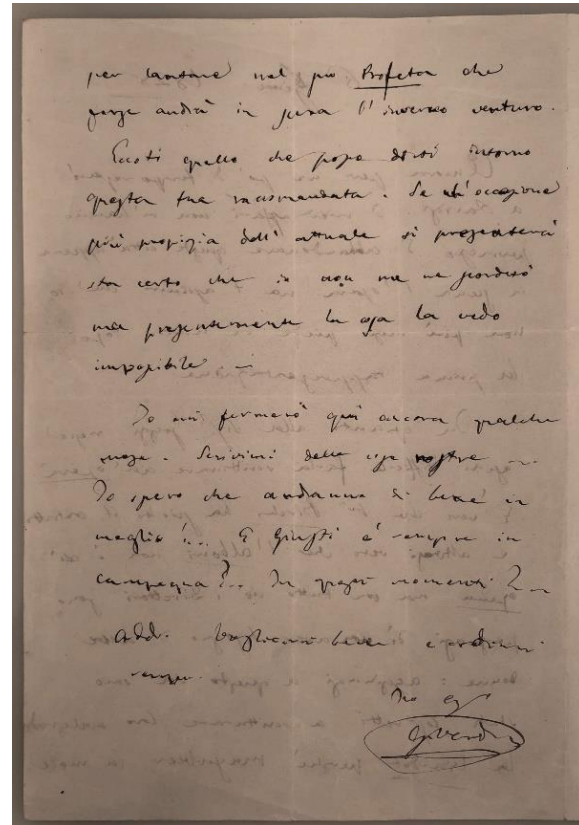 per cantare nel suo Profeta che
forse andrà in scena l'inverno venturo.
Eccoti quello che posso dirti intorno
questa tua raccomandata. Se un'occasione
più propizia dell'attuale si presenterà
sta certo che io non me ne scorderò
ma presentemente la cosa la vedo
impossibile —
Io mi fermerò qui ancora qualche
mese. Scrivimi delle cose vostre —
Io spero che andranno di bene in
meglio!.. E Giusti è sempre in
campagna?.. In questi momenti?—
Add. Vogliami bene e credimi
sempre.
Tuo
G Verdi